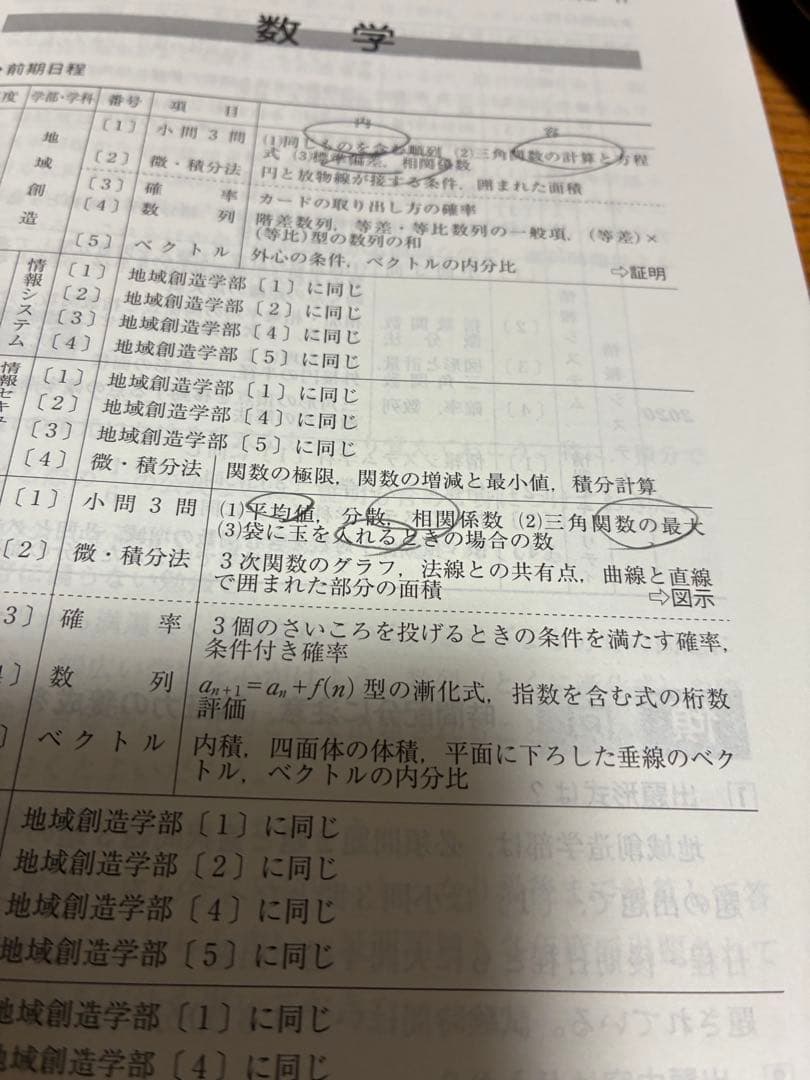 数 学
前期日程
度 学部・学科 番号 項 目 内 容
地域創造 〔1〕 小問3問 (1)同じものを含む順列 (2)三角関数の計算と方程
式 (3)標準偏差，相関係数
〔2〕 微・積分法 円と放物線が接する条件，囲まれた面積
〔3〕 確 率 カードの取り出し方の確率
〔4〕 数 列 階差数列，等差・等比数列の一般項，(等差)×
(等比)型の数列の和
〔5〕 ベクトル 外心の条件，ベクトルの内分比 ⇨証明
情報システム 〔1〕 地域創造学部〔1〕に同じ
〔2〕 地域創造学部〔2〕に同じ
〔3〕 地域創造学部〔4〕に同じ
〔4〕 地域創造学部〔5〕に同じ
情報セキュ 〔1〕 地域創造学部〔1〕に同じ
〔2〕 地域創造学部〔4〕に同じ
〔3〕 地域創造学部〔5〕に同じ
〔4〕 微・積分法 関数の極限，関数の増減と最小値，積分計算
〔1〕 小問3問 (1)平均値，分散，相関係数 (2)三角関数の最大
(3)袋に玉を入れるときの場合の数
〔2〕 微・積分法 3次関数のグラフ，法線との共有点，曲線と直線
で囲まれた部分の面積 ⇨図示
3〕 確 率 3個のさいころを投げるときの条件を満たす確率，
条件付き確率
4〕 数 列 aₙ₊₁＝aₙ＋f(n)型の漸化式，指数を含む式の桁数
評価
〕 ベクトル 内積，四面体の体積，平面に下ろした垂線のベク
トル，ベクトルの内分比
地域創造学部〔1〕に同じ
地域創造学部〔2〕に同じ
地域創造学部〔4〕に同じ
地域創造学部〔5〕に同じ
地域創造学部〔1〕に同じ
地域創造学部〔4〕に同じ